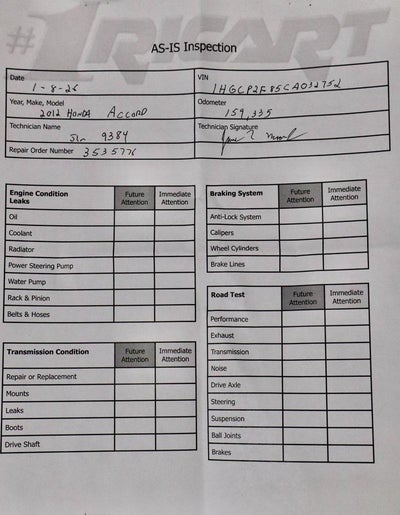 #1RICART
AS-IS Inspection
Date
1-8-26
VIN
1HGCP2F85CA032752
Year, Make, Model
2012 HONDA ACCORD
Odometer
159,335
Technician Name
9384
Technician Signature
Repair Order Number 3535776
Engine Condition
Leaks
Future
Attention
Immediate
Attention
Oil
Coolant
Radiator
Power Steering Pump
Water Pump
Rack & Pinion
Belts & Hoses
Transmission Condition
Future
Attention
Immediate
Attention
Repair or Replacement
Mounts
Leaks
Boots
Drive Shaft
Braking System
Future
Attention
Immediate
Attention
Anti-Lock System
Calipers
Wheel Cylinders
Brake Lines
Road Test
Future
Attention
Immediate
Attention
Performance
Exhaust
Transmission
Noise
Drive Axle
Steering
Suspension
Ball Joints
Brakes